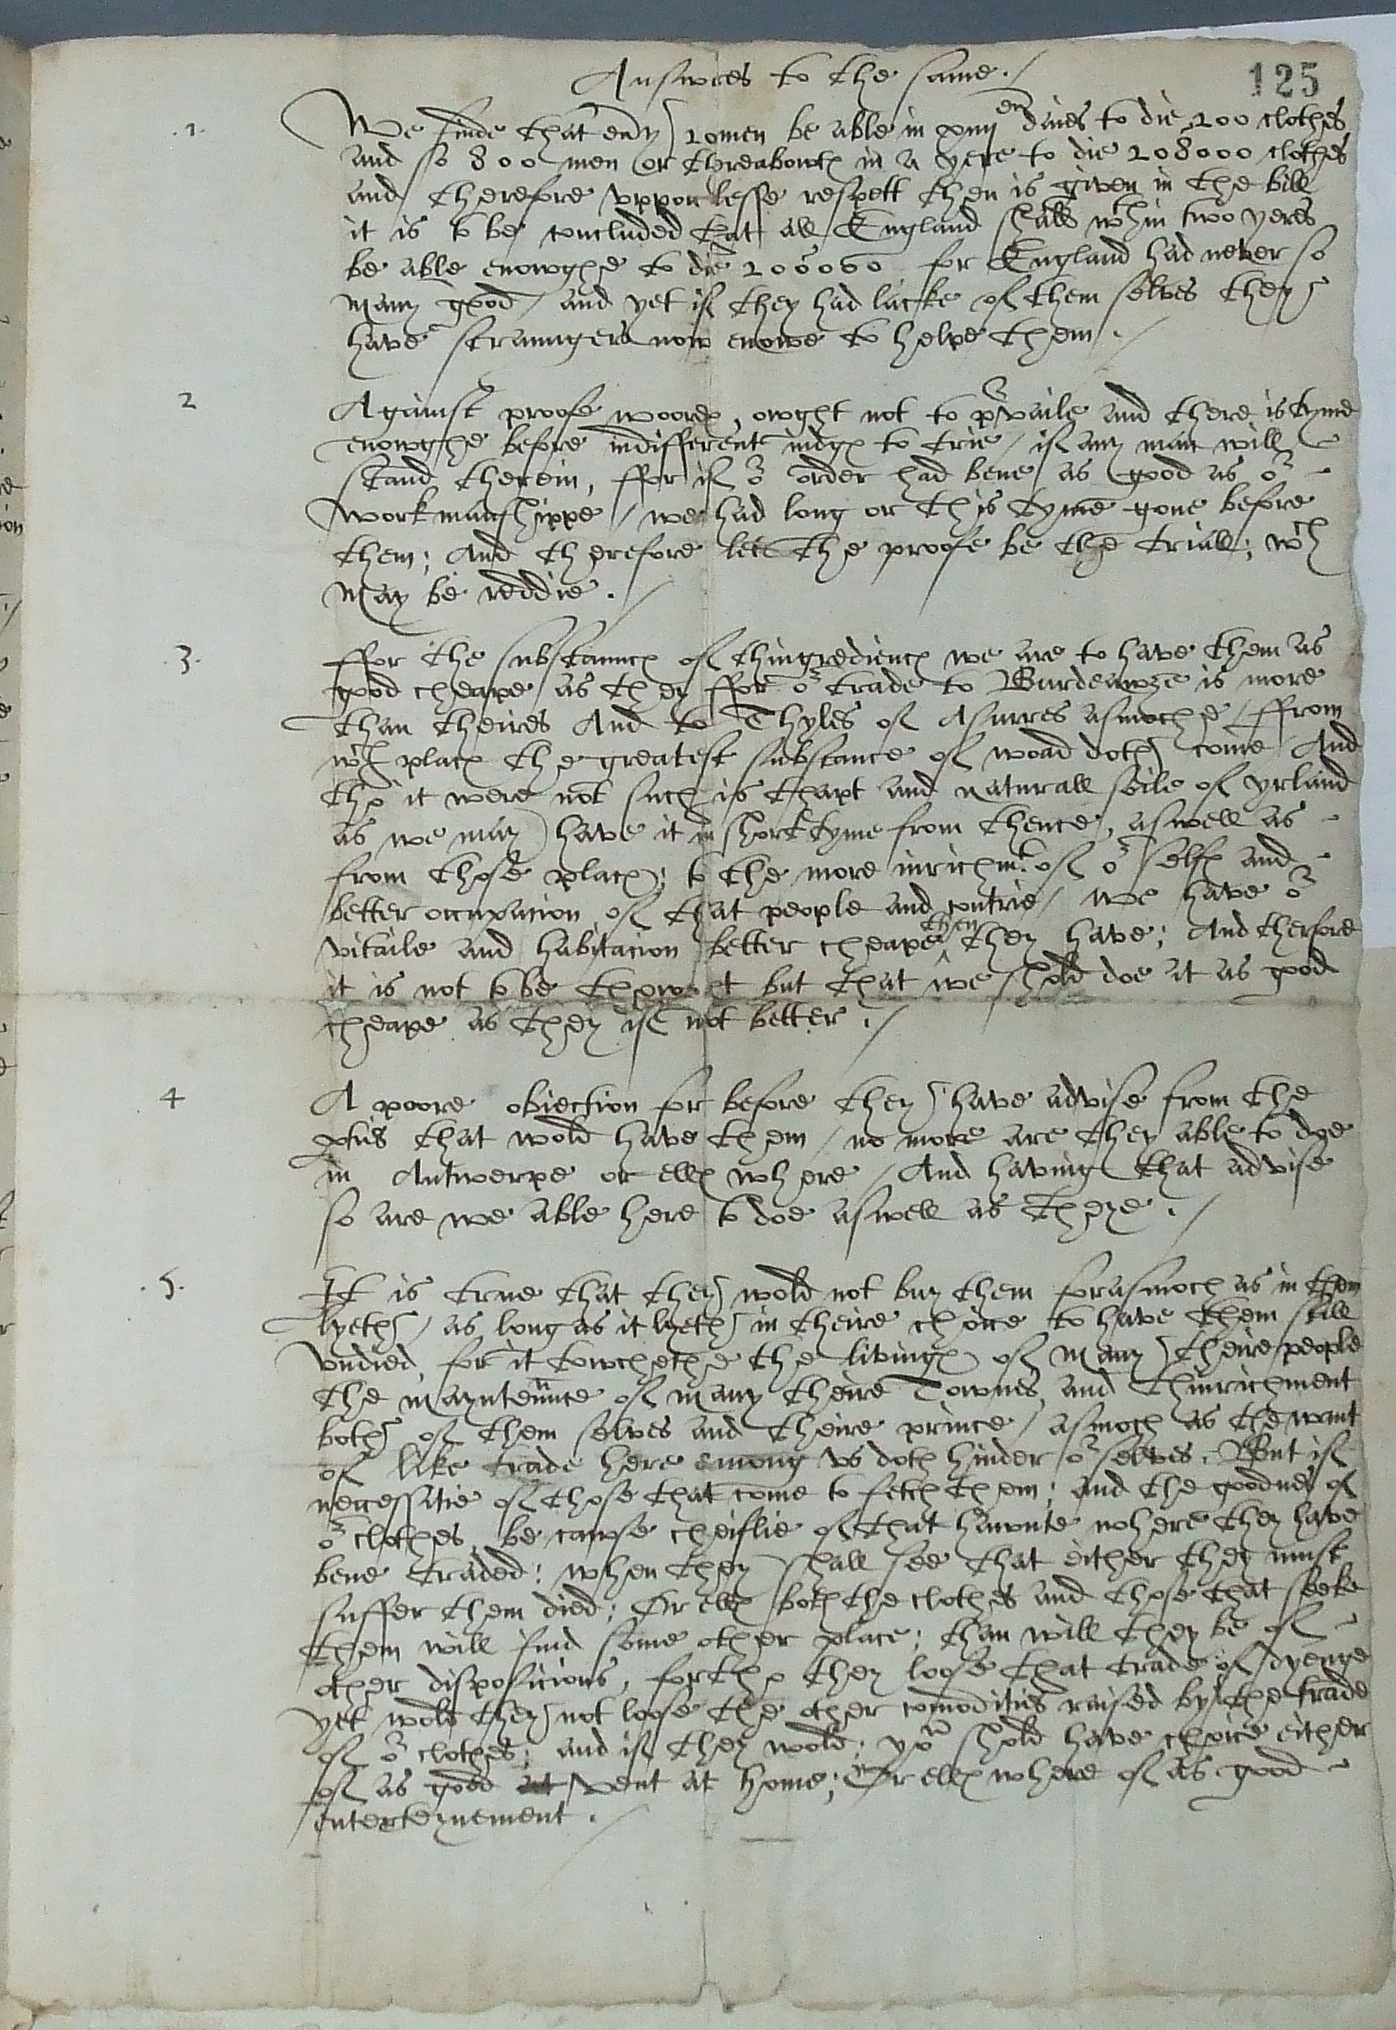 Answeres to the same ./
125
.1.
We finde that every 20 men be able in xiiij en daies to die 200 clothes
and so 800 men or thereabowts in a yere to die 208000 clothes
and therefore vppon lesse respett then is given in the bill
it is to be concluded that all England shall wth in two yeres
be able enowghe to die 208000 for England had never so
many good / and yet if they had lacke of them selves they
have straungers now enowe to helpe them ./
2
Against proofe woordes, owght not to pr vaile and there is tyme
enowghe before indifferente iudges to trie / if any man will
stand therein, ffor if or order had bene as good as or
workmanshippe / we had long or this tyme gone before
them; And therefore lett the proofe be the triall; wch
may be reddie ./
.3.
ffor the substaunce of thingrediences we are to have them as
good cheape as they ffor or trade to Burdeawxe is more
than theires And to Thyles of Asurres asmoche / ffrom
wch places the greatest substance of woad doth come / And
tho it were not such is thapt and naturall soile of yrland
as we may have it in short tyme from thence, aswell as
from those places; to the more inrichmt of or selfes and
better occupacion of that people and contrie / we have or
vitaile and habitacion better cheape then they have; And therfore
it is not to be thowght but that we shold doe it as good
cheape as they if not better ./
4
A poore obiection for before they have advise from the
ptes that wold have them / no more are they able to doe
in Antwerpe or elles where / And having that advise
so are we able here to doe aswell as there ./
.5.
It is true that they wold not buy them forasmoch as in them
lyeth / as long as it lyeth in theire choice to have them still
vndied for it towchethe the livinges of many theire people
the mayntennce of many theire Townes and thinrichment
both of them selves and theire prince / asmoch as the want
of like trade here among vs doth hinder or selves. But if
necessitie of those that come to fetch them; and the goodnes of
or clothes, be cawse cheiflie of that hawnte where they have
bene traded; when they shall see that either they must
suffer them died; Or elles both the clothes and those that seeke
them will find some other place; than will they be of
other disposicions, for tho they loose that trade of dyenge
yet wold they not loose the other comodities raised by the trade
of or clothes; and if they wold; yow shold have choice either
of as good vent at home; Or elles where of as good
enterteynement ./